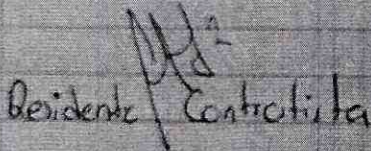 Residente Contratista